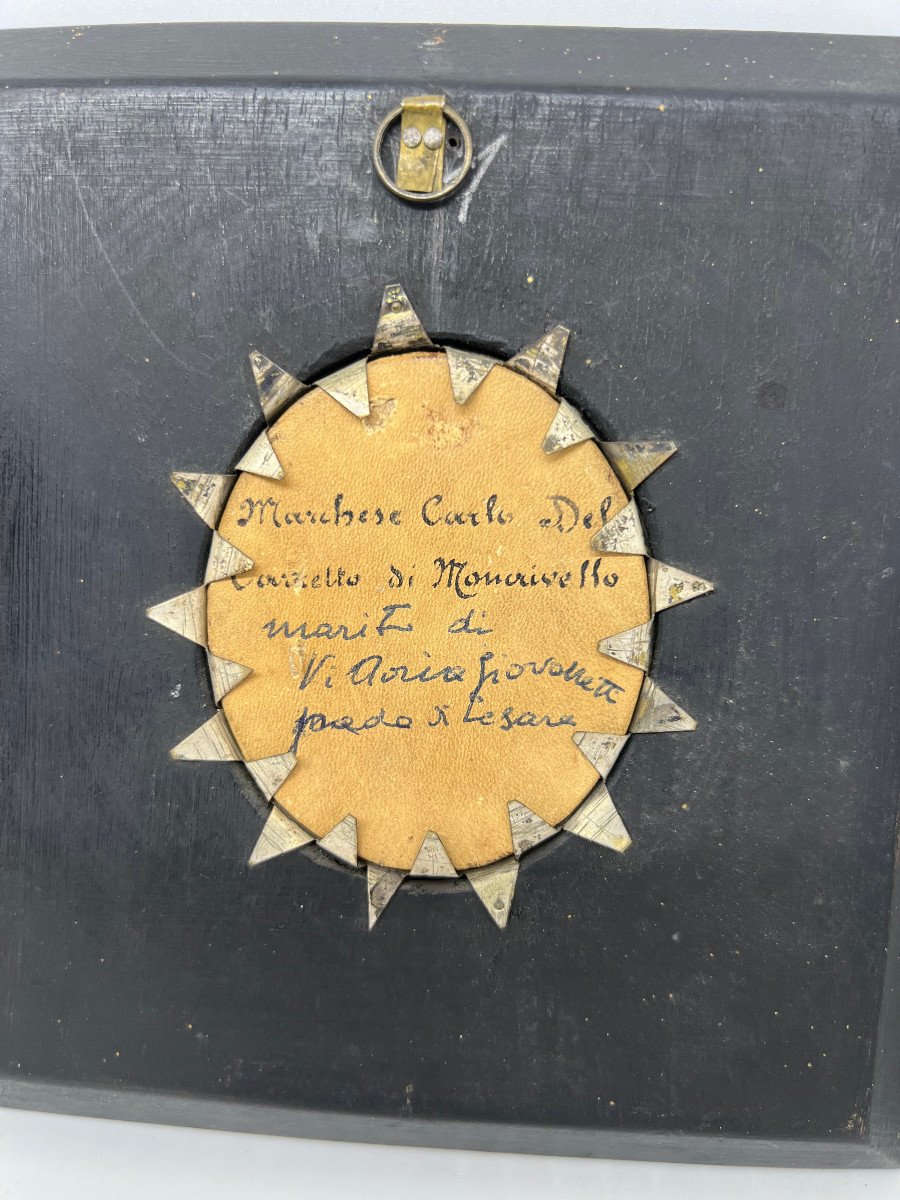 Marchese Carlo Del
Carretto di Moncrivello
marito di
V. Doria Giovanetti